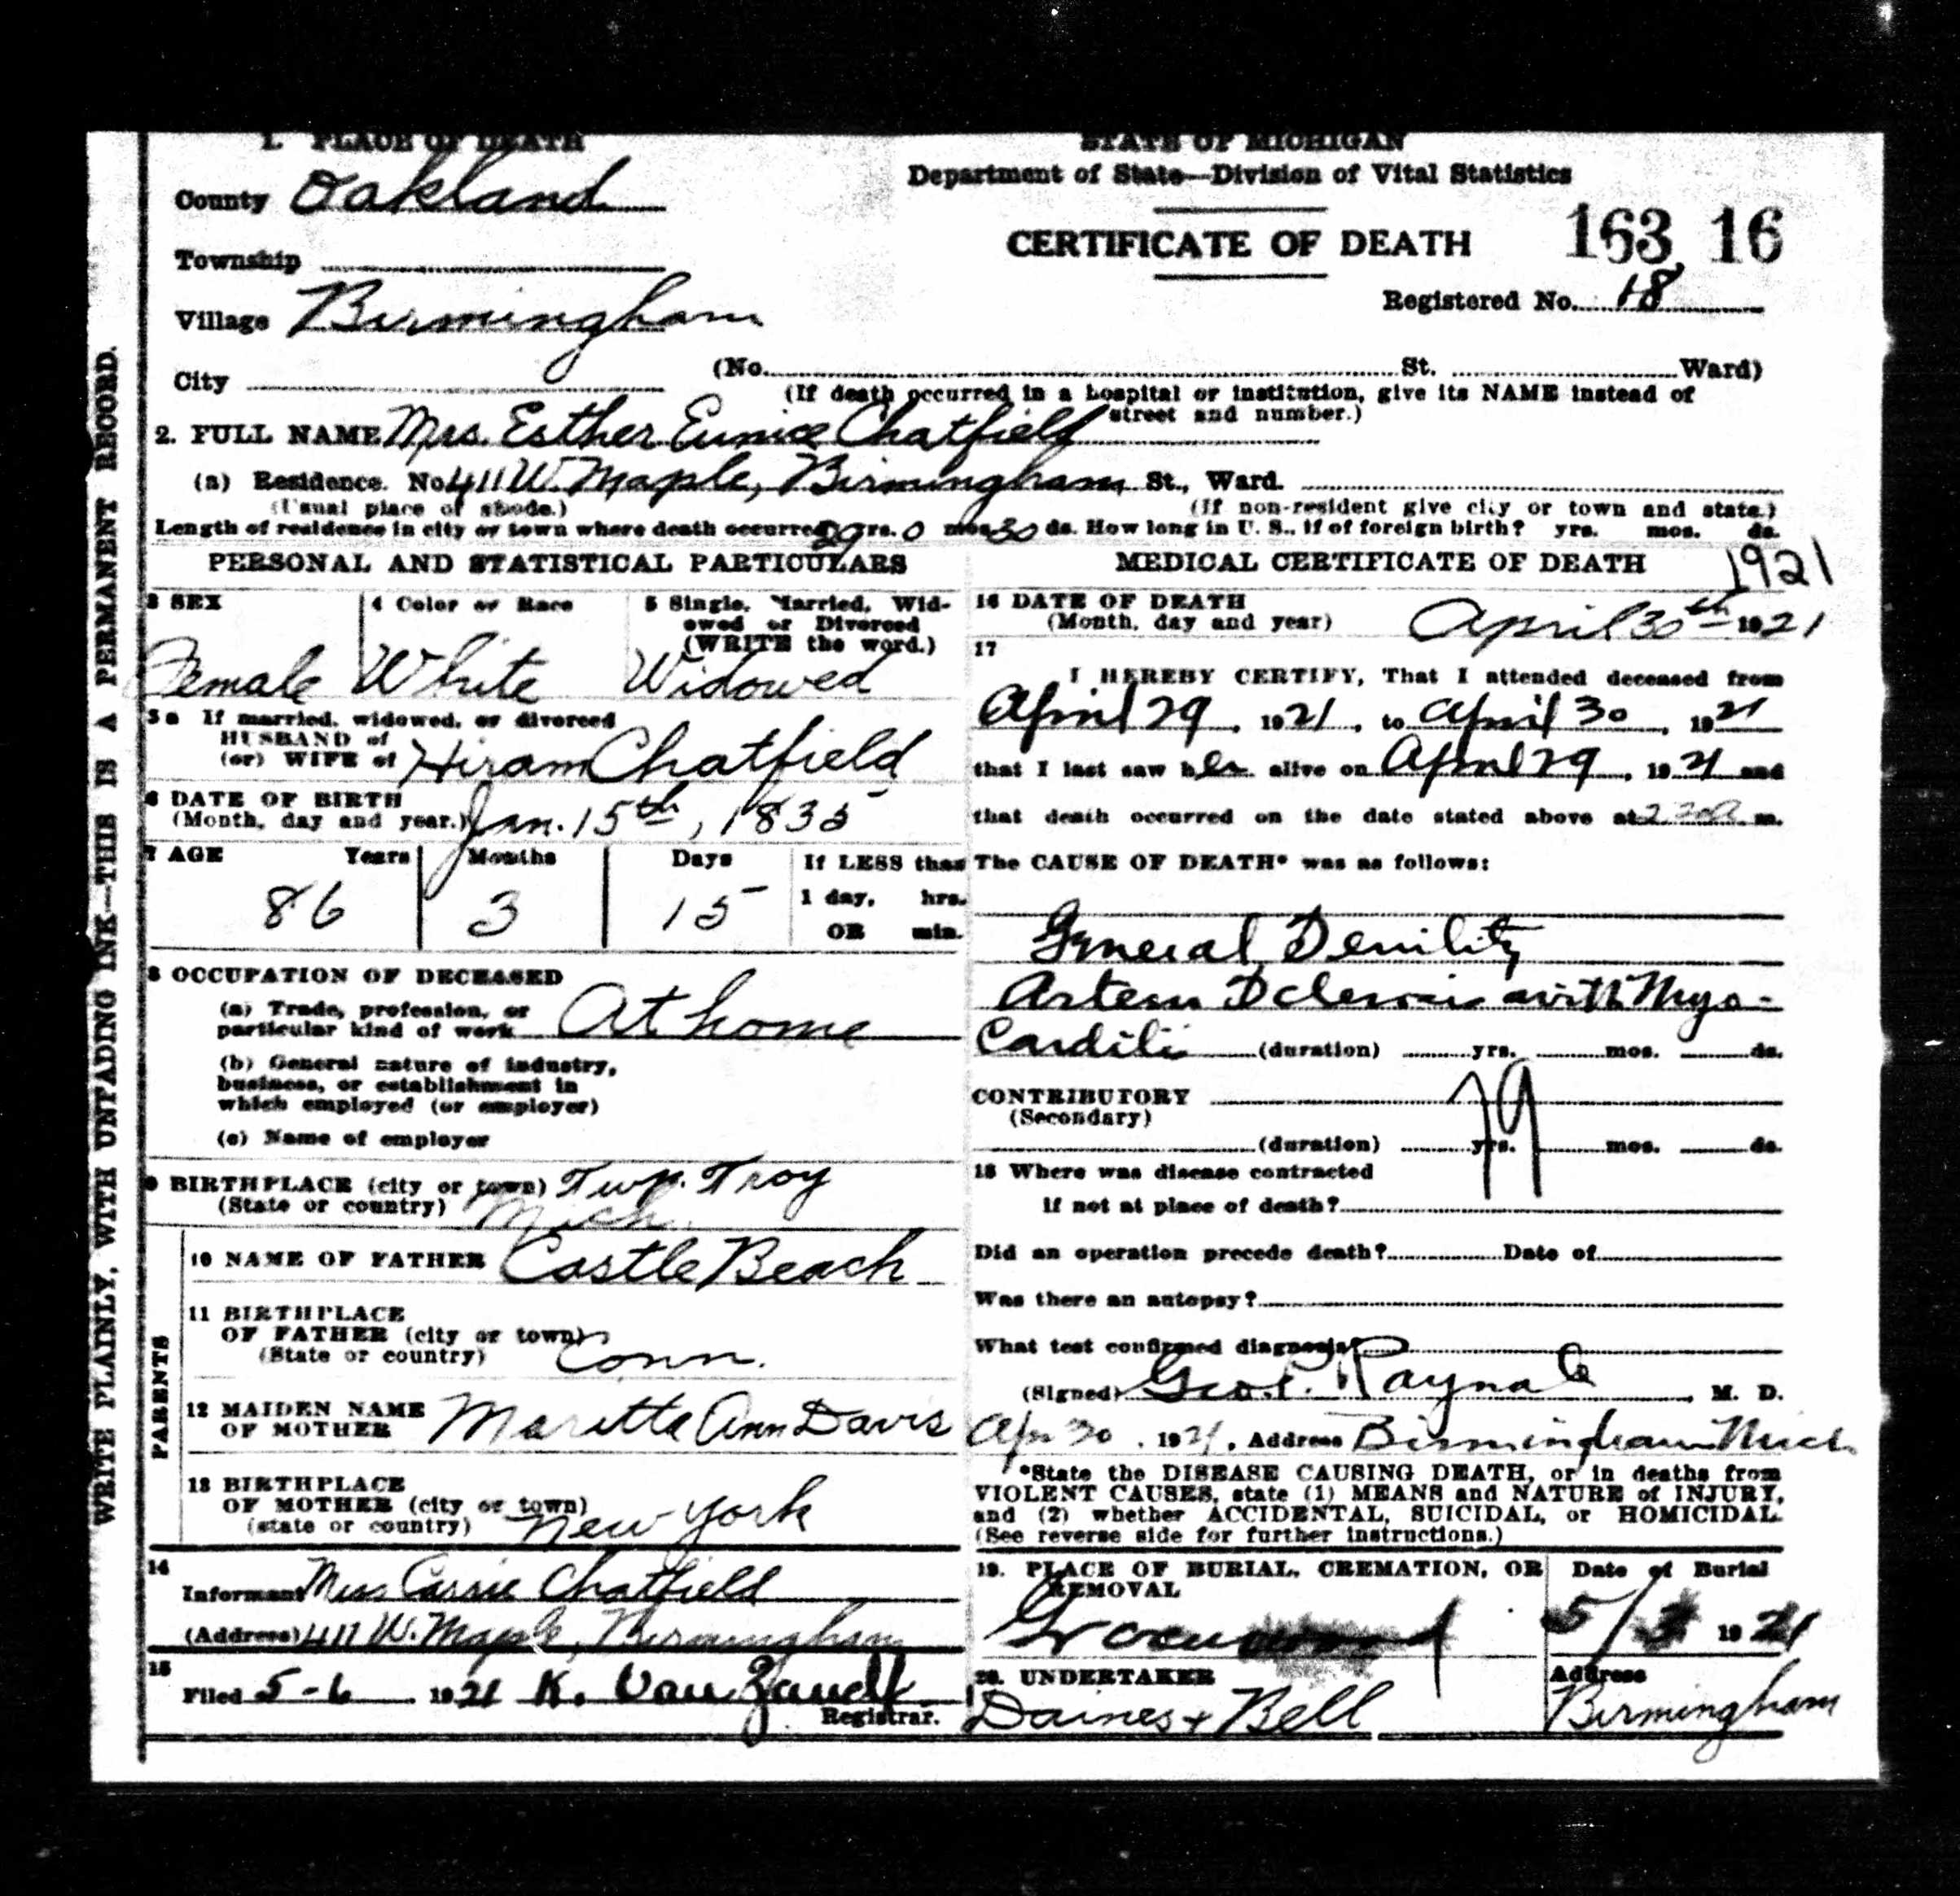 1. PLACE OF DEATH
County Oakland
Township
Village Birmingham
City
STATE OF MICHIGAN
Department of State—Division of Vital Statistics
CERTIFICATE OF DEATH
163 16
Registered No. 18
(No. St. Ward)
(If death occurred in a hospital or institution, give its NAME instead of
street and number.)
2. FULL NAME Mrs. Esther Eunice Chatfield
(a) Residence. No. 411 W. Maple, Birmingham St., Ward.
(Usual place of abode.) (If non-resident give city or town and state.)
Length of residence in city or town where death occurred yrs. 0 mos. 30 ds. How long in U. S., if of foreign birth? yrs. mos. ds.
PERSONAL AND STATISTICAL PARTICULARS
3 SEX
Female
4 Color or Race
White
5 Single, Married, Wid-
owed or Divorced
(WRITE the word.)
Widowed
5a If married, widowed, or divorced
HUSBAND of
(or) WIFE of Hiram Chatfield
6 DATE OF BIRTH
(Month, day and year.) Jan. 15th, 1835
7 AGE Years Months Days If LESS than
1 day, hrs.
OR min.
86 3 15
8 OCCUPATION OF DECEASED
(a) Trade, profession, or
particular kind of work At home
(b) General nature of industry,
business, or establishment in
which employed (or employer)
(c) Name of employer
9 BIRTHPLACE (city or town) Twp. Troy
(State or country) Mich.
PARENTS
10 NAME OF FATHER Castle Beach
11 BIRTHPLACE
OF FATHER (city or town)
(State or country) Conn.
12 MAIDEN NAME
OF MOTHER Maritta Ann Davis
13 BIRTHPLACE
OF MOTHER (city or town)
(state or country) New York
14
Informant Miss Carrie Chatfield
(Address) 411 W. Maple, Birmingham
15
Filed 5-6 1921 K. Van Zandt
Registrar.
MEDICAL CERTIFICATE OF DEATH 1921
16 DATE OF DEATH
(Month, day and year) April 30th 1921
17
I HEREBY CERTIFY, That I attended deceased from
April 29, 1921, to April 30, 1921
that I last saw her alive on April 29, 1921 and
that death occurred on the date stated above at m.
The CAUSE OF DEATH* was as follows:
General Denility
Arterio Sclerosis with Myo-
Carditis (duration) yrs. mos. ds.
CONTRIBUTORY 79
(Secondary)
(duration) yrs. mos. ds.
18 Where was disease contracted
if not at place of death?
Did an operation precede death? Date of
Was there an autopsy?
What test confirmed diagnosis?
(Signed) Geo. P. Raynale, M. D.
Apr 30, 1921, Address Birmingham Mich
*State the DISEASE CAUSING DEATH, or in deaths from
VIOLENT CAUSES, state (1) MEANS and NATURE of INJURY,
and (2) whether ACCIDENTAL, SUICIDAL, or HOMICIDAL.
(See reverse side for further instructions.)
19. PLACE OF BURIAL, CREMATION, OR
REMOVAL
Greenwood
Date of Burial
5/3 1921
20. UNDERTAKER
Daines & Bell
Address
Birmingham
WRITE PLAINLY, WITH UNFADING INK—THIS IS A PERMANENT RECORD.